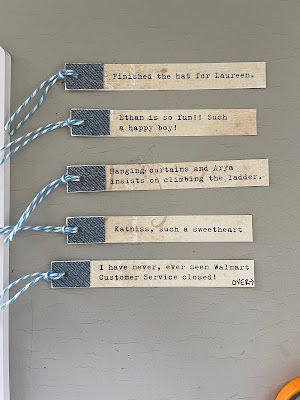 Finished the hat for Laureen.
Ethan is so fun!! Such
a happy boy!
Hanging curtains and Arya
insists on climbing the ladder.
Katniss, such a sweetheart
I have never, ever seen Walmart
Customer Service closed!
OVER→